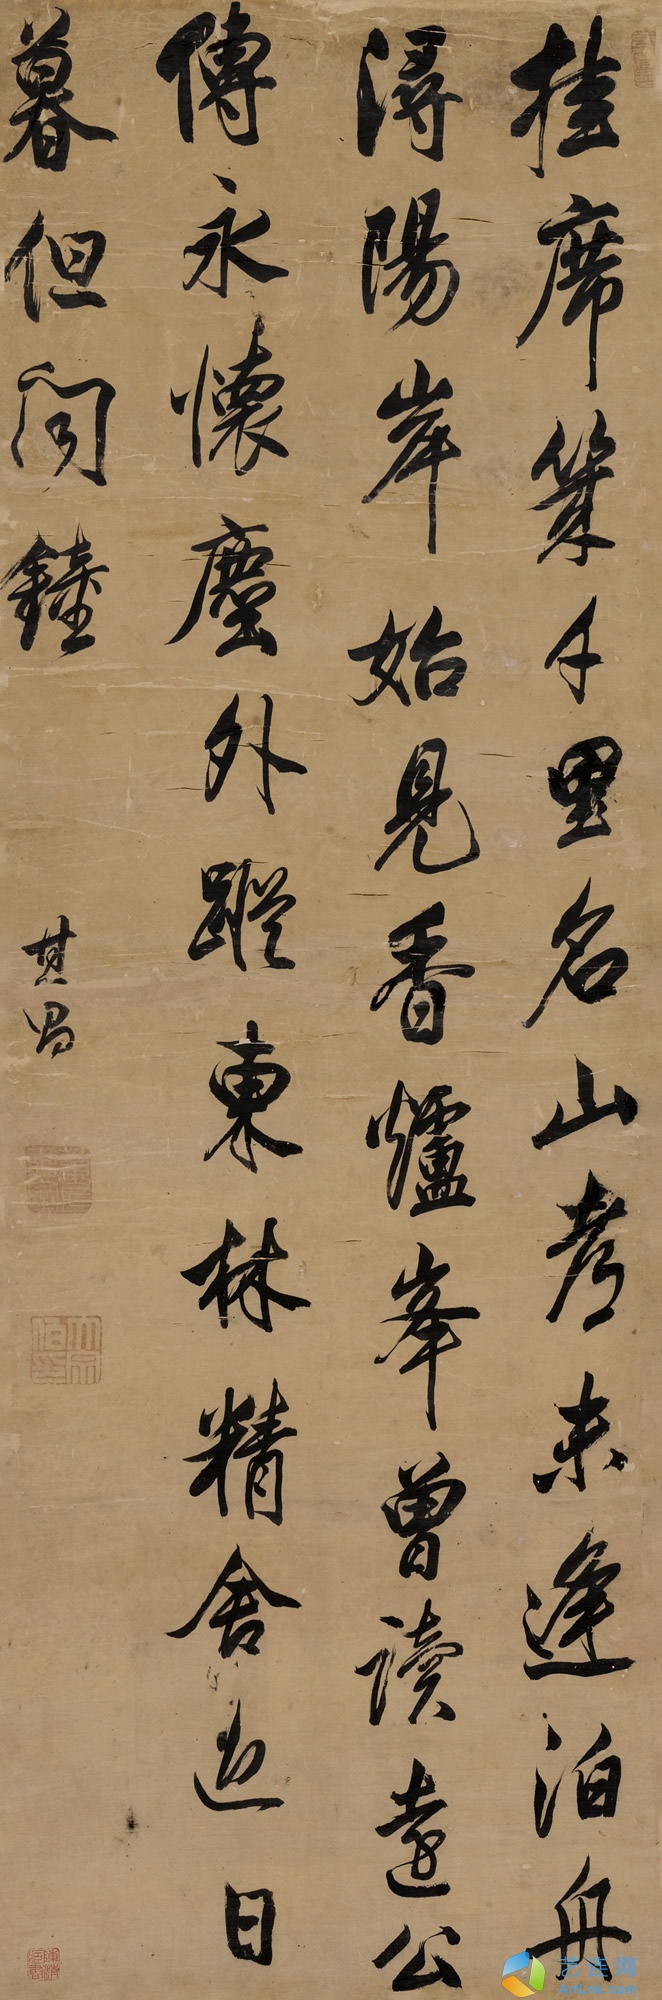 挂席幾千里名山都未逢泊舟
潯陽岸始見香爐峯曾讀遠公
傳永懷塵外蹤東林精舍近日
暮但聞鐘
其昌